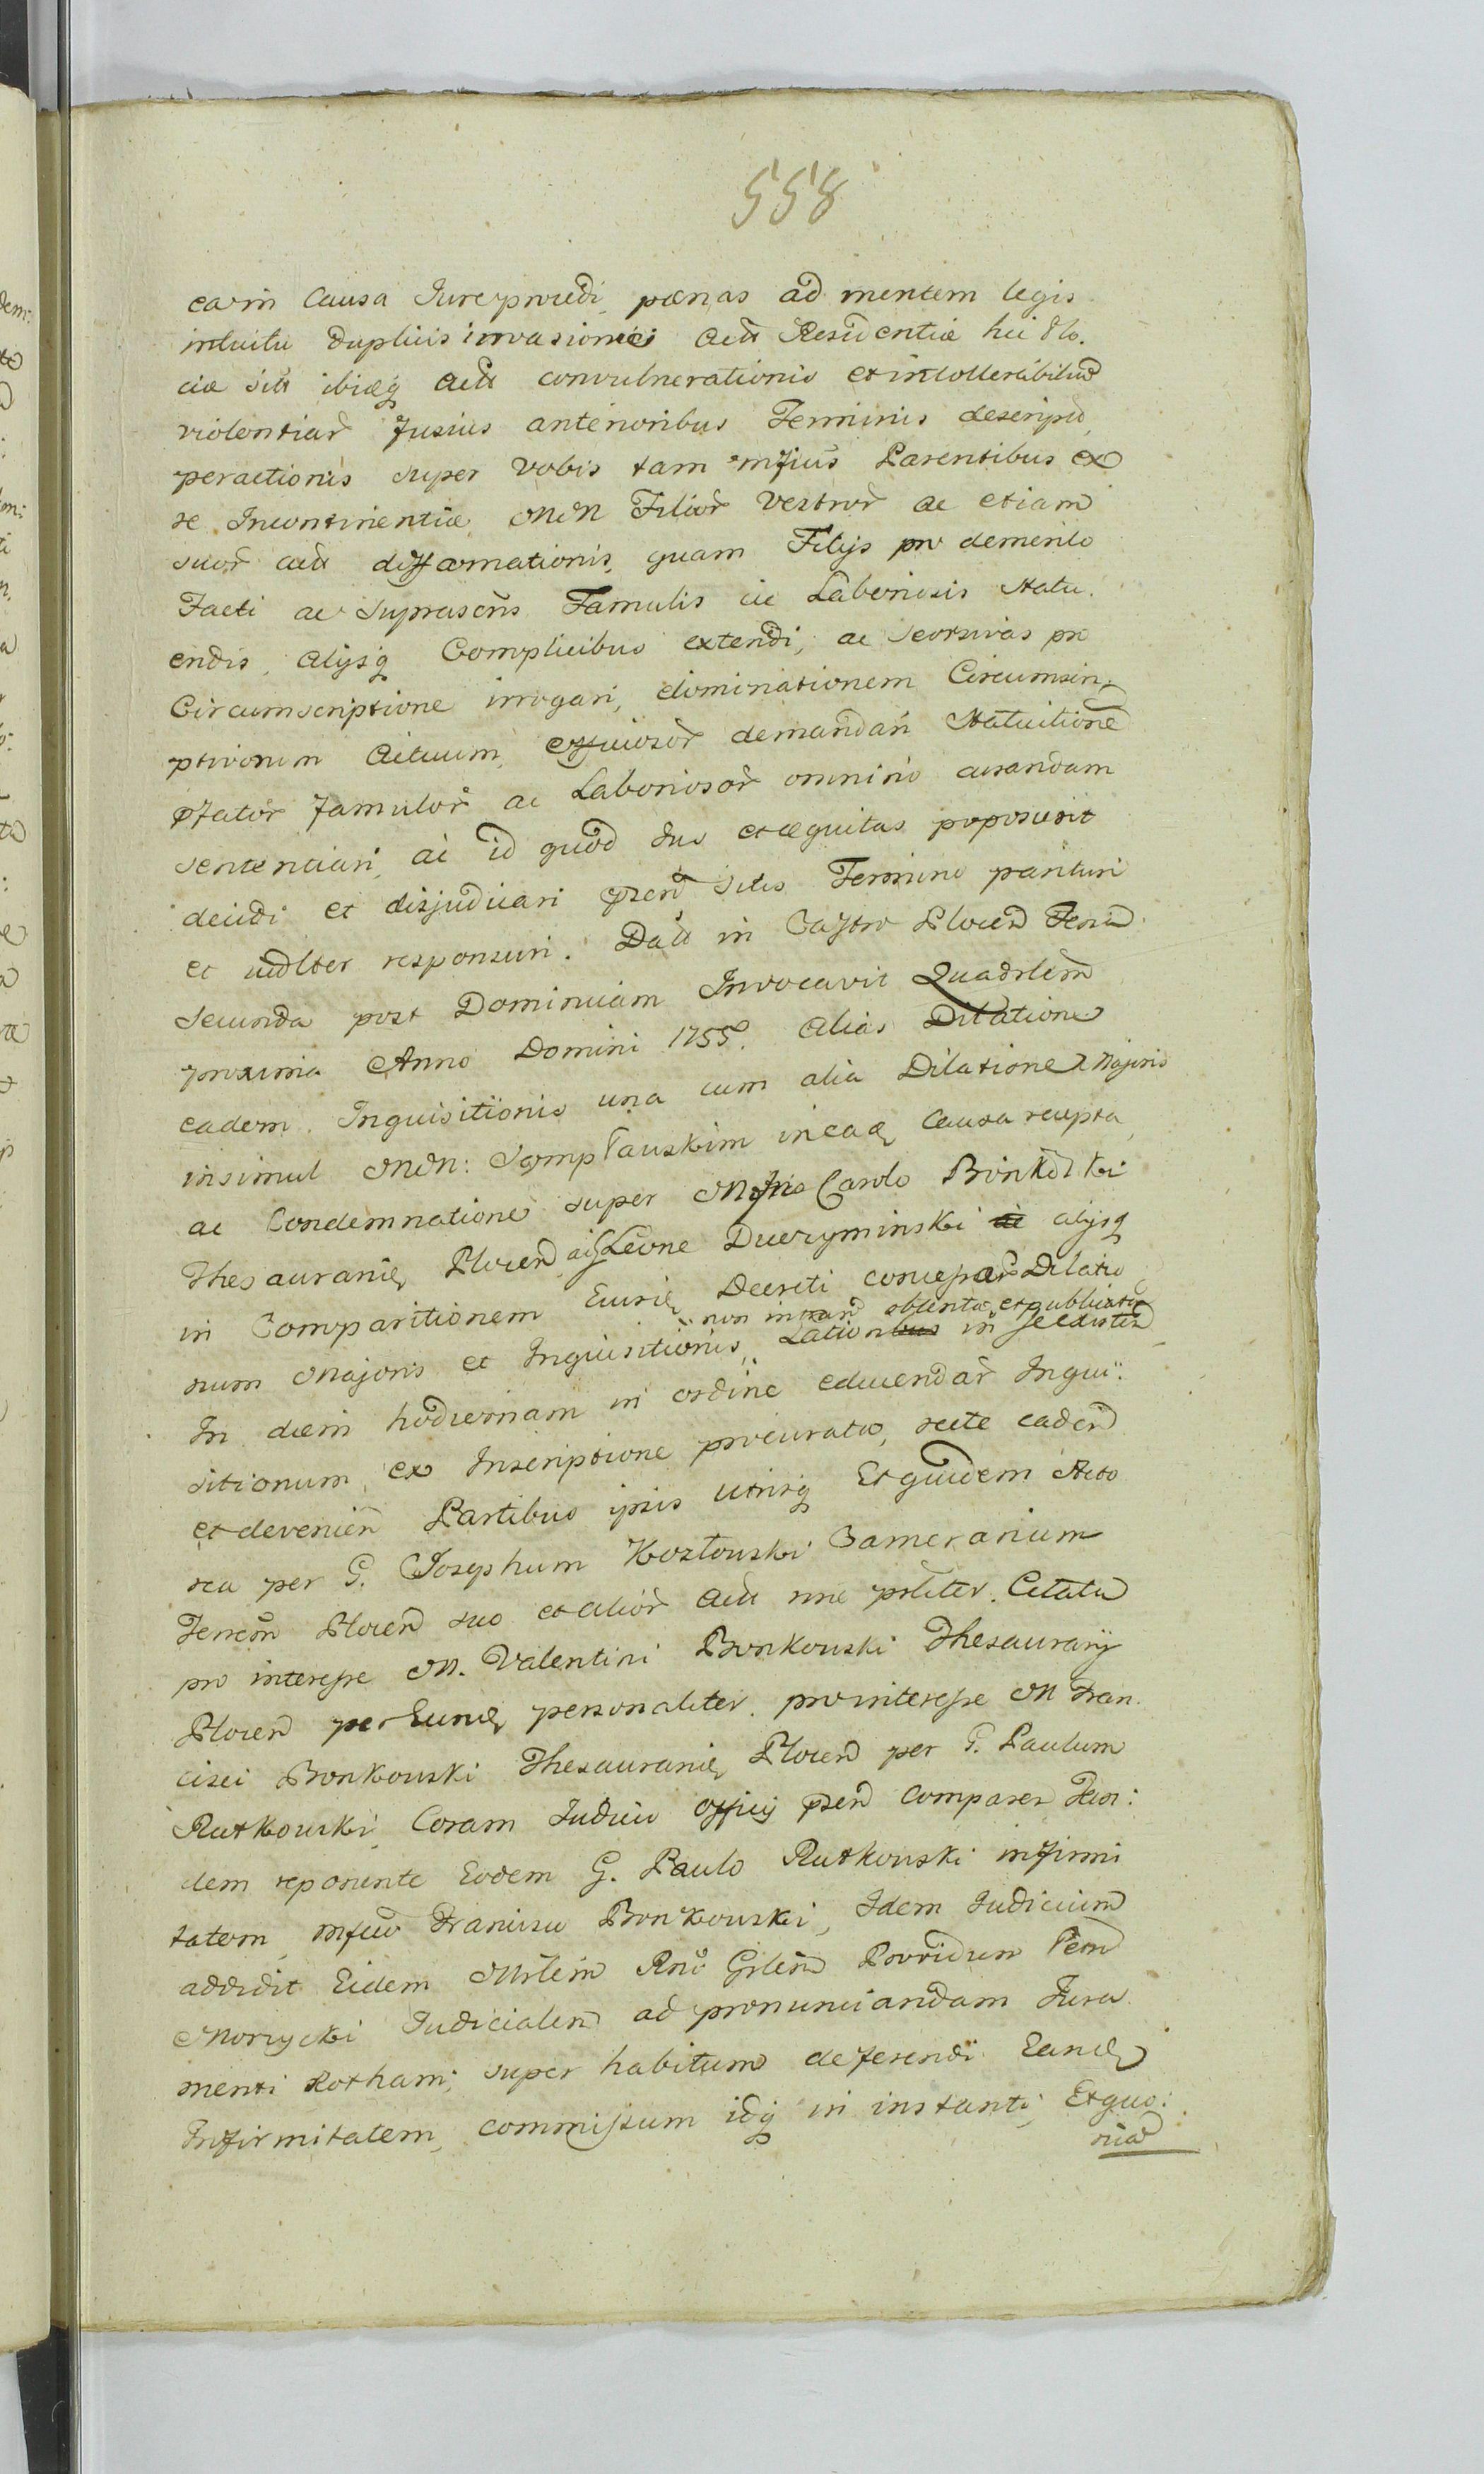 558
eam Causa Jure provedi, pœnas ad mentem legis
intuitu duplicis invasionis Actt Residentiæ hic Plo.
ciæ sitt ibidęq Actt convulnerationis et intollerabiliũ
violentiar̃ fusius anterioribus Terminis descript
peractionis super vobis tam mfius Parentibus ex
se Incontinentiæ, MM Filiõr Vestrõr ac etiam
suõr actt difformationis, quam Filijs pro demerito
Facti ac suprascñs Famulis ac Laboriosis Statu.
endis, alijsq Complicibus extendi, ac seorsivas pro
Circumscriptione irrogari, eliminationem Circumscri,
ptivorum Actuum, officiosõr demandari Statuitionẽ
pfatõr famulõr ac Laboriosõr omnino curandam
sentenciari, ac id quod Jus et æquitas poposcerit
decidi et disjudicari ꝓsen Sitis Termino parituri
et iudlter responsuri. Datt in Castro Plocen Feria
secunda post Dominicam Invocavit Quadrlem
proxima Anno Domini 1755. alias Dilatione
eadem Inquisitionis una cum alia Dilatione Majoris
insimul MM: in eaq Causa recepta,
ac Condemnatione super Mfio Carolo Bonkoski
Thesauranię Plocen ac Leone Dueryminski ac alijsq
in Comparitionem Decreti Dilatio
non obtenta et publicata
num Majoris et Inquisitionis, Lationibus in
In diem hodiernam in ordine educendar̃ Inqui:
sitionum, ex Inscriptione procurata, recte caden
et devenien Partibus ipsis utrisq Et quidem Acto
rea per G. Josephum Kozłouski Camerarium
Terrem̃ Plocen suo et aliõr actt nne prliter. Citata
pro interesse M. Valentini Bonkouski Thesaurarij
Plocen per personaliter. pro interesse M Fran.
cisci Bonkouski Thesauranię Plocen per G. Paulum
Rutkouski, Coram Judicio Officij ꝓsen Comparen
dem reponente Eodem G. Paulo Rutkouski infirmi
tatem mfico Francisco Bonkouski, Idem Judicium
addidit Eidem Mrlem Rno Grlem Providum
Morzycki Judicialem ad pronunciandam Jura
menti Rotham, super habitum deferendi
Infirmitatem, commissum idq in instanti, Et quo:
niã